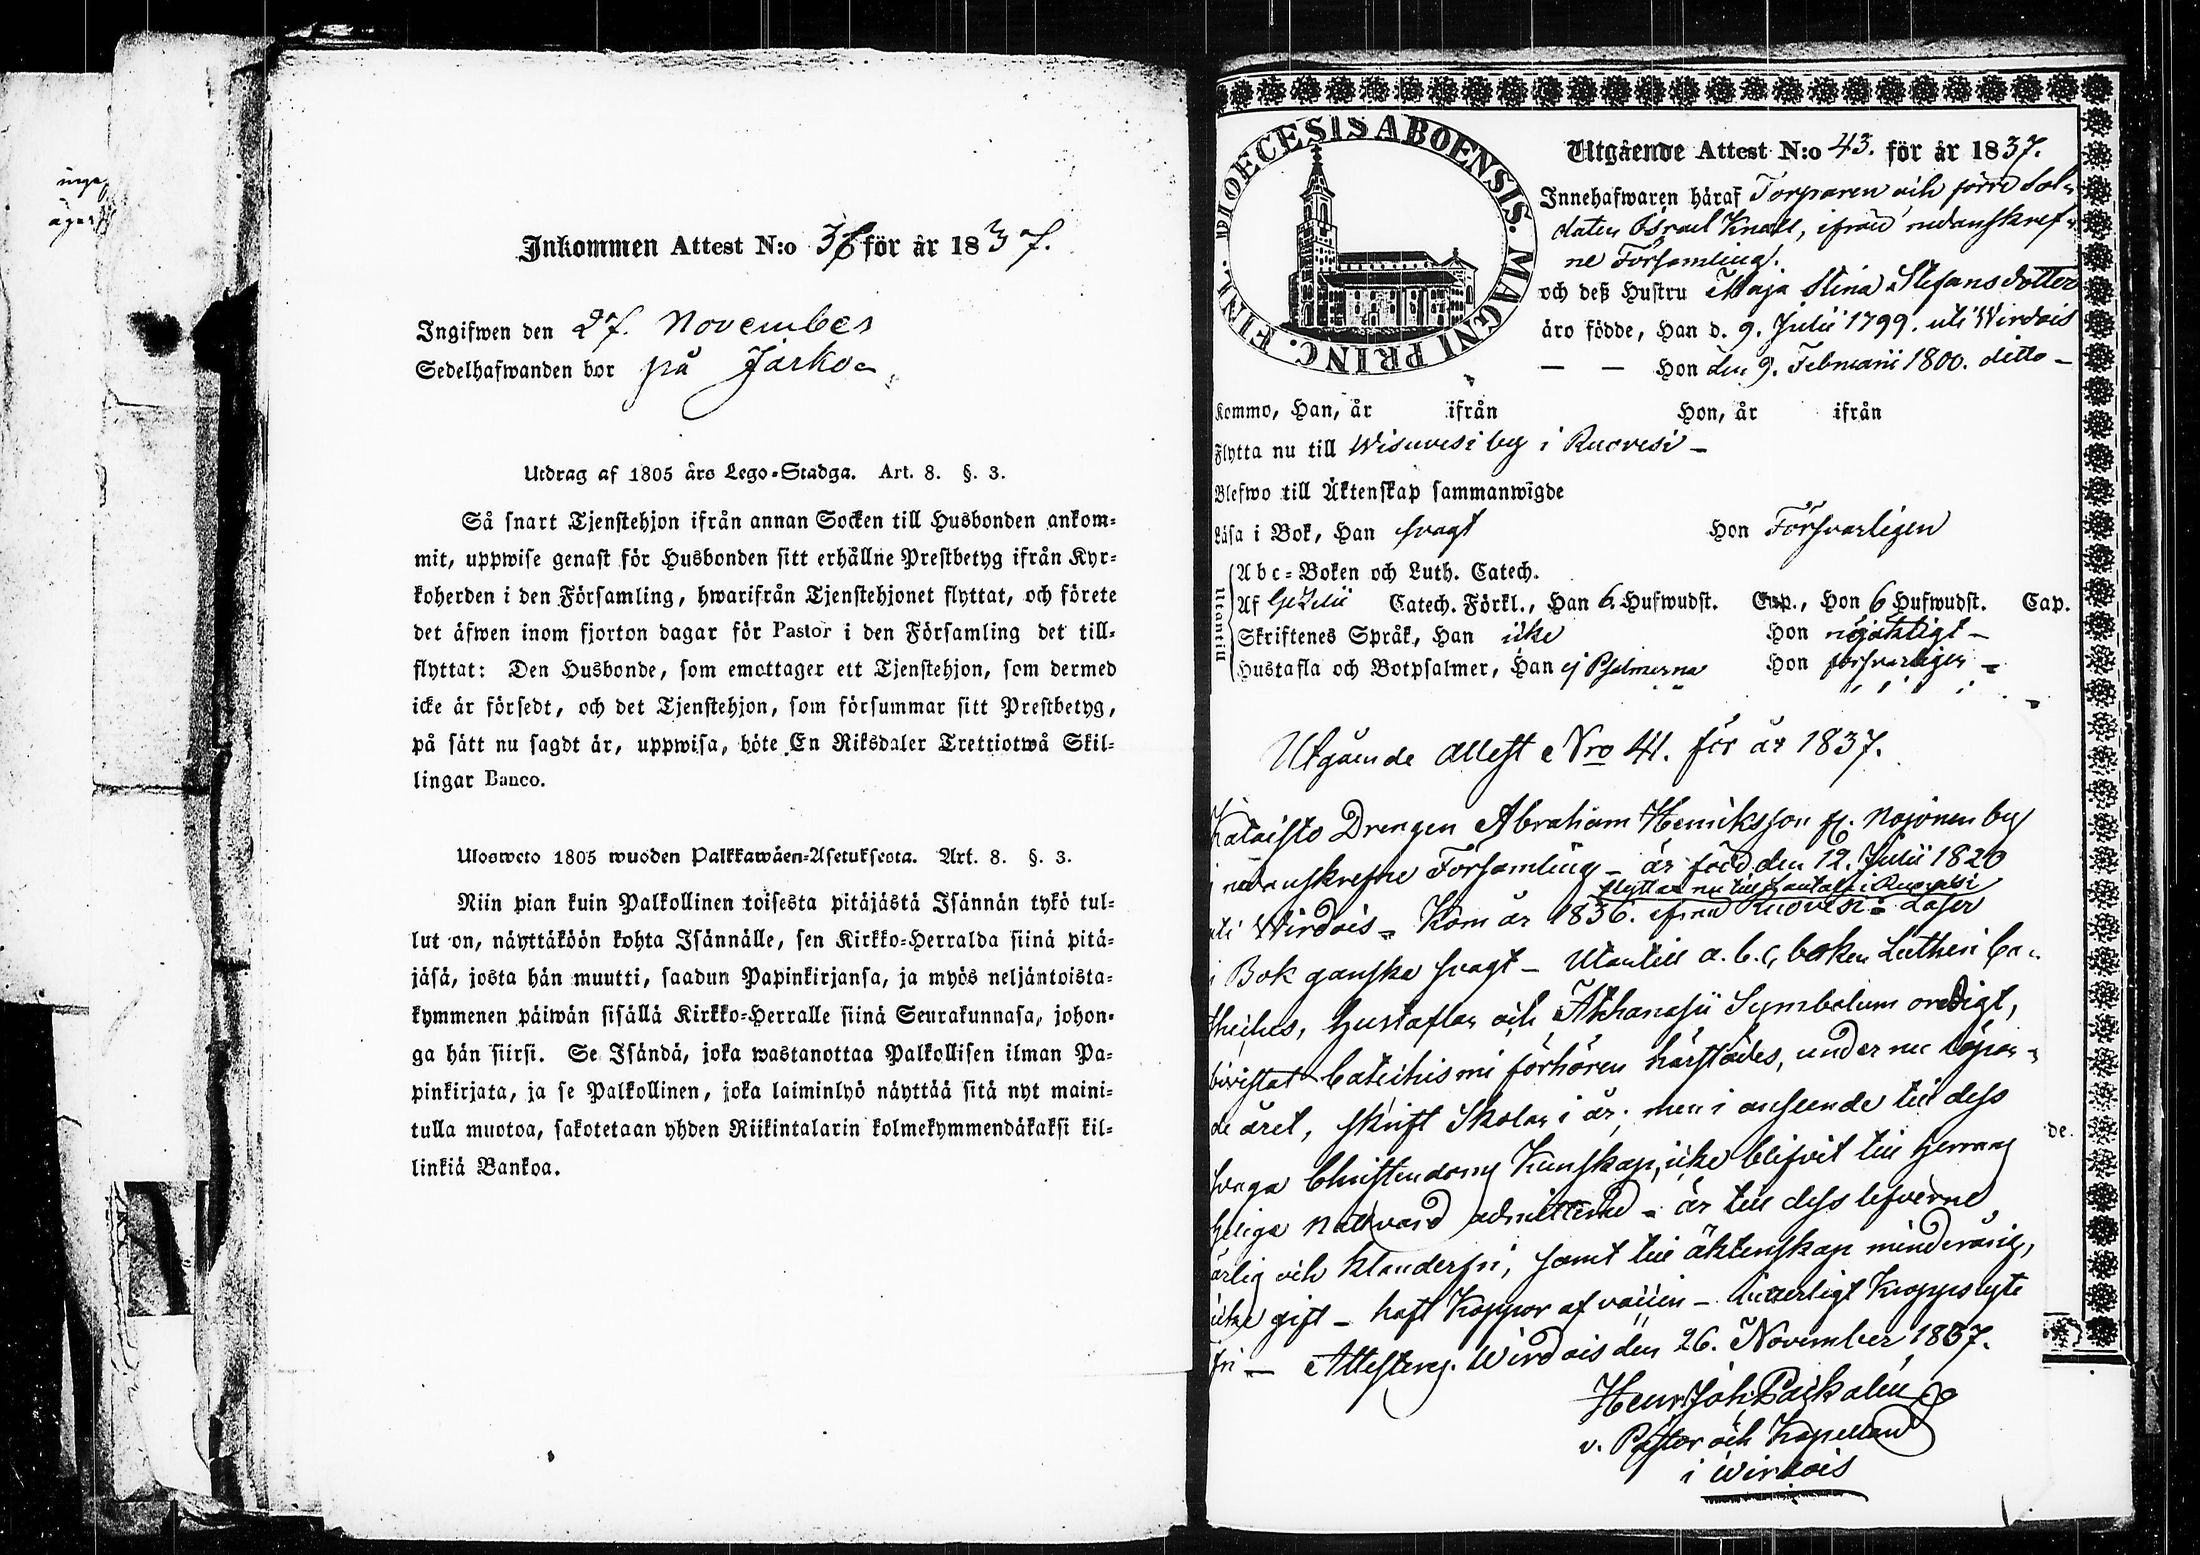 Inkommen Attest N:o 36 för år 1837.
Ingifwen den 27. November
Sedelhafwanden bor på Järko
Utdrag af 1805 års Lego-Stadga. Art. 8. §. 3.
Så snart Tjenstehjon ifrån annan Socken till Husbonden ankom-
mit, uppwise genast för Husbonden sitt erhållne Prestbetyg ifrån Kyr-
koherden i den Församling, hwarifrån Tjenstehjonet flyttat, och förete
det äfwen inom fjorton dagar för Pastor i den Församling det till-
flyttat: Den Husbonde, som emottager ett Tjenstehjon, som dermed
icke är försedt, och det Tjenstehjon, som försummar sitt Prestbetyg,
på sätt nu sagdt är, uppwisa, böte En Riksdaler Trettiotwå Skil-
lingar Banco.
Ulosweto 1805 wuoden Palkkawäen-Asetuksesta. Art. 8. §. 3.
Niin pian kuin Palkollinen toisesta pitäjästä Isännän tykö tul-
lut on, näyttäköön kohta Isännälle, sen Kirkko-Herralda siinä pitä-
jäsä, josta hän muutti, saadun Papinkirjansa, ja myös neljäntoista-
kymmenen päiwän sisällä Kirkko-Herralle siinä Seurakunnasa, johon-
ga hän siirsi. Se Isändä, joka wastanottaa Palkollisen ilman Pa-
pinkirjata, ja se Palkollinen, joka laiminlyö näyttää sitä nyt maini-
tulla muotoa, sakotetaan yhden Riikintalarin kolmekymmendäkaksi kil-
linkiä Bankoa.
DIOECESIS ABOENSIS. MAGNI PRINC. FINL.
Utgående Attest N:o 43. för år 1837.
Innehafwaren häraf Torparen och förre Sol-
daten Israel Knall, ifrån nedanskref-
ne Församling.
och deß Hustru Maja Stina Stefansdotter
äro födde, Han d. 9. Julii 1799. uti Wirdois
— — Hon den 9. Februarii 1800. ditto -
Kommo, Han, år ifrån Hon, år ifrån
Flytta nu till Wisuvesi by i Ruovesi -
Blefwo till Äktenskap sammanwigde
Läsa i Bok, Han svagt Hon Försvarligen
Utantill
Abc-Boken och Luth. Catech.
Af Gezelii Catech. Förkl., Han 6 Hufwudst. Cap., Hon 6 Hufwudst. Cap.
Skriftenes Språk, Han icke Hon nöjaktigt -
Hustafla och Botpsalmer, Han ej Psalmerna Hon försvarligen -
Utgående Attest Nro 41. för år 1837.
Drengen Abraham Henriksson fr. Nojonen by
nedanskrefne Församling - är född den 12. Julii 1820
flyttar nu till i Ruovesi
uti Wirdois - Kom år 1836. ifrån Ruovesi - Läser
i Bok ganska svagt - Utantill a. b. c. boken Lutheri Ca-
theches, Hustaflan och Athanasii Symbolum oredigt,
bivistat Catechismi förhören härstädes, under nu löpan-
de året, skrift Skolan i år; men i anseende till dess
svaga Christendoms Kunskap, icke blifvit till Herrans
Heliga Nattvard admitterad - är till dess lefverne
ärlig och klanderfri, samt till äktenskap minderårig,
icke gift - haft Koppor af vaccin - Kroppslyte
fri - Attesteras. Wirdois den 26. November 1837.
Henr. Joh.
v. Pastor och Kapellan
i Wirdois
de.